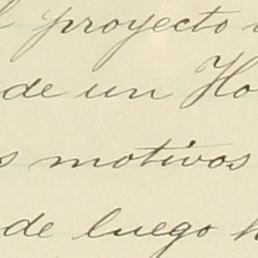 l proyecto
de un Ho
s motivos
de luego h